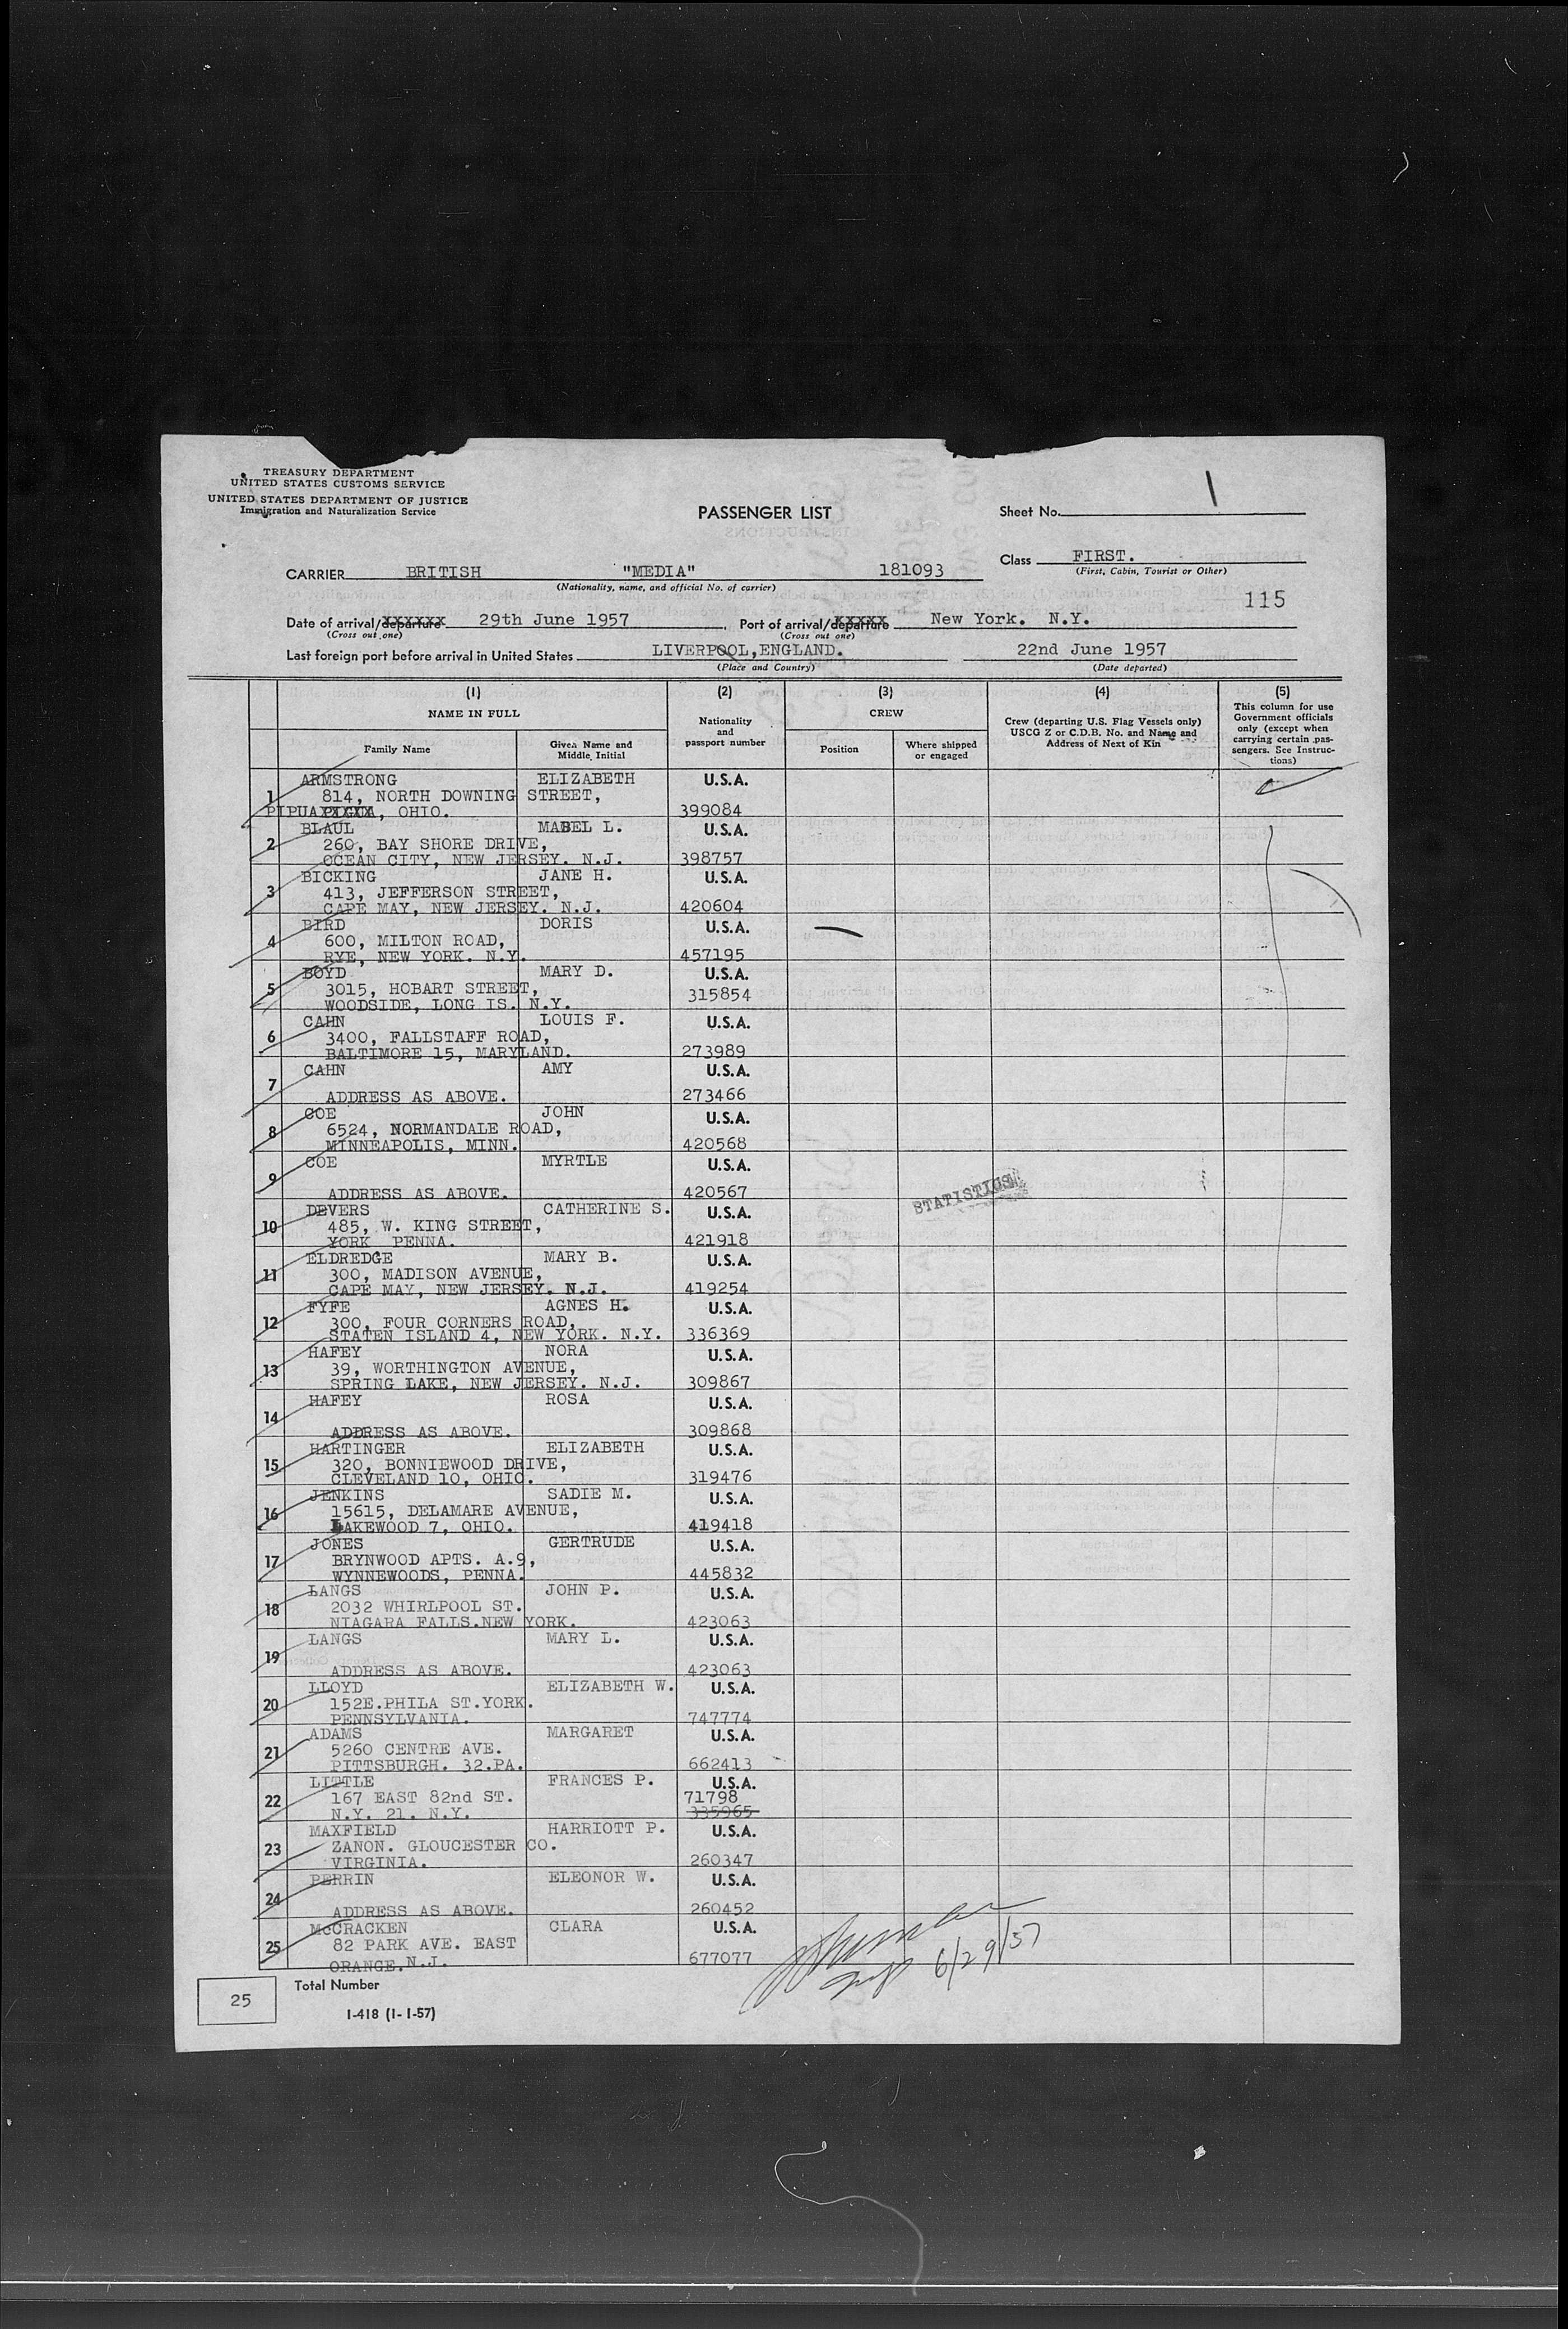 TREASURY DEPARTMENT
UNITED STATES CUSTOMS SERVICE
UNITED STATES DEPARTMENT OF JUSTICE
Immigration and Naturalization Service
PASSENGER LIST
Sheet No. 1
Class FIRST.
(First, Cabin, Tourist or Other)
CARRIER BRITISH "MEDIA" 181093
(Nationality, name, and official No. of carrier)
115
Date of arrival/departure 29th June 1957 Port of arrival/departure New York. N.Y.
(Cross out one) (Cross out one)
Last foreign port before arrival in United States LIVERPOOL,ENGLAND. 22nd June 1957
(Place and Country) (Date departed)
(1) (2) (3) (4) (5)
NAME IN FULL Nationality and passport number CREW Crew (departing U.S. Flag Vessels only) USCG Z or C.D.B. No. and Name and Address of Next of Kin This column for use Government officials only (except when carrying certain pas-sengers. See Instruc-tions)
Family Name Given Name and Middle Initial Position Where shipped or engaged
ARMSTRONG ELIZABETH U.S.A.
1 814, NORTH DOWNING STREET,
PIPUA, OHIO. 399084
BLAUL MABEL L. U.S.A.
2 260, BAY SHORE DRIVE,
OCEAN CITY, NEW JERSEY. N.J. 398757
BICKING JANE H. U.S.A.
3 413, JEFFERSON STREET,
CAPE MAY, NEW JERSEY. N.J. 420604
BIRD DORIS U.S.A.
4 600, MILTON ROAD,
RYE, NEW YORK. N.Y. 457195
BOYD MARY D. U.S.A.
5 3015, HOBART STREET,
WOODSIDE, LONG IS. N.Y. 315854
CAHN LOUIS F. U.S.A.
6 3400, FALLSTAFF ROAD,
BALTIMORE 15, MARYLAND. 273989
CAHN AMY U.S.A.
7
ADDRESS AS ABOVE. 273466
COE JOHN U.S.A.
8 6524, NORMANDALE ROAD,
MINNEAPOLIS, MINN. 420568
COE MYRTLE U.S.A.
9
ADDRESS AS ABOVE. 420567
STATISTICS
DEVERS CATHERINE S. U.S.A.
10 485, W. KING STREET,
YORK PENNA. 421918
ELDREDGE MARY B. U.S.A.
11 300, MADISON AVENUE,
CAPE MAY, NEW JERSEY. N.J. 419254
FYFE AGNES H. U.S.A.
12 300, FOUR CORNERS ROAD,
STATEN ISLAND 4, NEW YORK. N.Y. 336369
HAFEY NORA U.S.A.
13 39, WORTHINGTON AVENUE,
SPRING LAKE, NEW JERSEY. N.J. 309867
HAFEY ROSA U.S.A.
14
ADDRESS AS ABOVE. 309868
HARTINGER ELIZABETH U.S.A.
15 320, BONNIEWOOD DRIVE,
CLEVELAND 10, OHIO. 319476
JENKINS SADIE M. U.S.A.
16 15615, DELAMARE AVENUE,
LAKEWOOD 7, OHIO. 419418
JONES GERTRUDE U.S.A.
17 BRYNWOOD APTS. A.9,
WYNNEWOODS, PENNA. 445832
LANGS JOHN P. U.S.A.
18 2032 WHIRLPOOL ST.
NIAGARA FALLS.NEW YORK. 423063
LANGS MARY L. U.S.A.
19
ADDRESS AS ABOVE. 423063
LLOYD ELIZABETH W. U.S.A.
20 152E.PHILA ST.YORK.
PENNSYLVANIA. 747774
ADAMS MARGARET U.S.A.
21 5260 CENTRE AVE.
PITTSBURGH. 32.PA. 662413
LITTLE FRANCES P. U.S.A.
22 167 EAST 82nd ST. 71798
N.Y. 21. N.Y. 335965
MAXFIELD HARRIOTT P. U.S.A.
23 ZANON. GLOUCESTER CO.
VIRGINIA. 260347
PERRIN ELEONOR W. U.S.A.
24
ADDRESS AS ABOVE. 260452
McCRACKEN CLARA U.S.A.
25 82 PARK AVE. EAST
ORANGE.N.J. 677077
6/29/57
Total Number
25
I-418 (1-1-57)